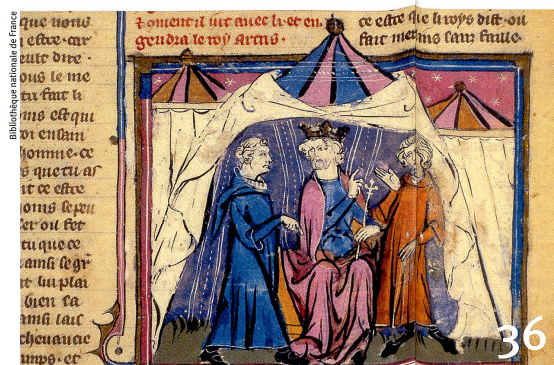 Bibliothèque nationale de France
que nous
estre car
eult dire
ous le me
tu fait li
oms est qui
or ensam
homme ce
s que tu as
t ce estre
oms se peu
er ou fet
tu que ce
amsi se gr
t lui plai
bien sa
amsi lais
cheuaucie
amps et
Coment il uit auec li et en
gendra le roy artus
ce estre que li roys dist ou
fait merlins sanz faille
36